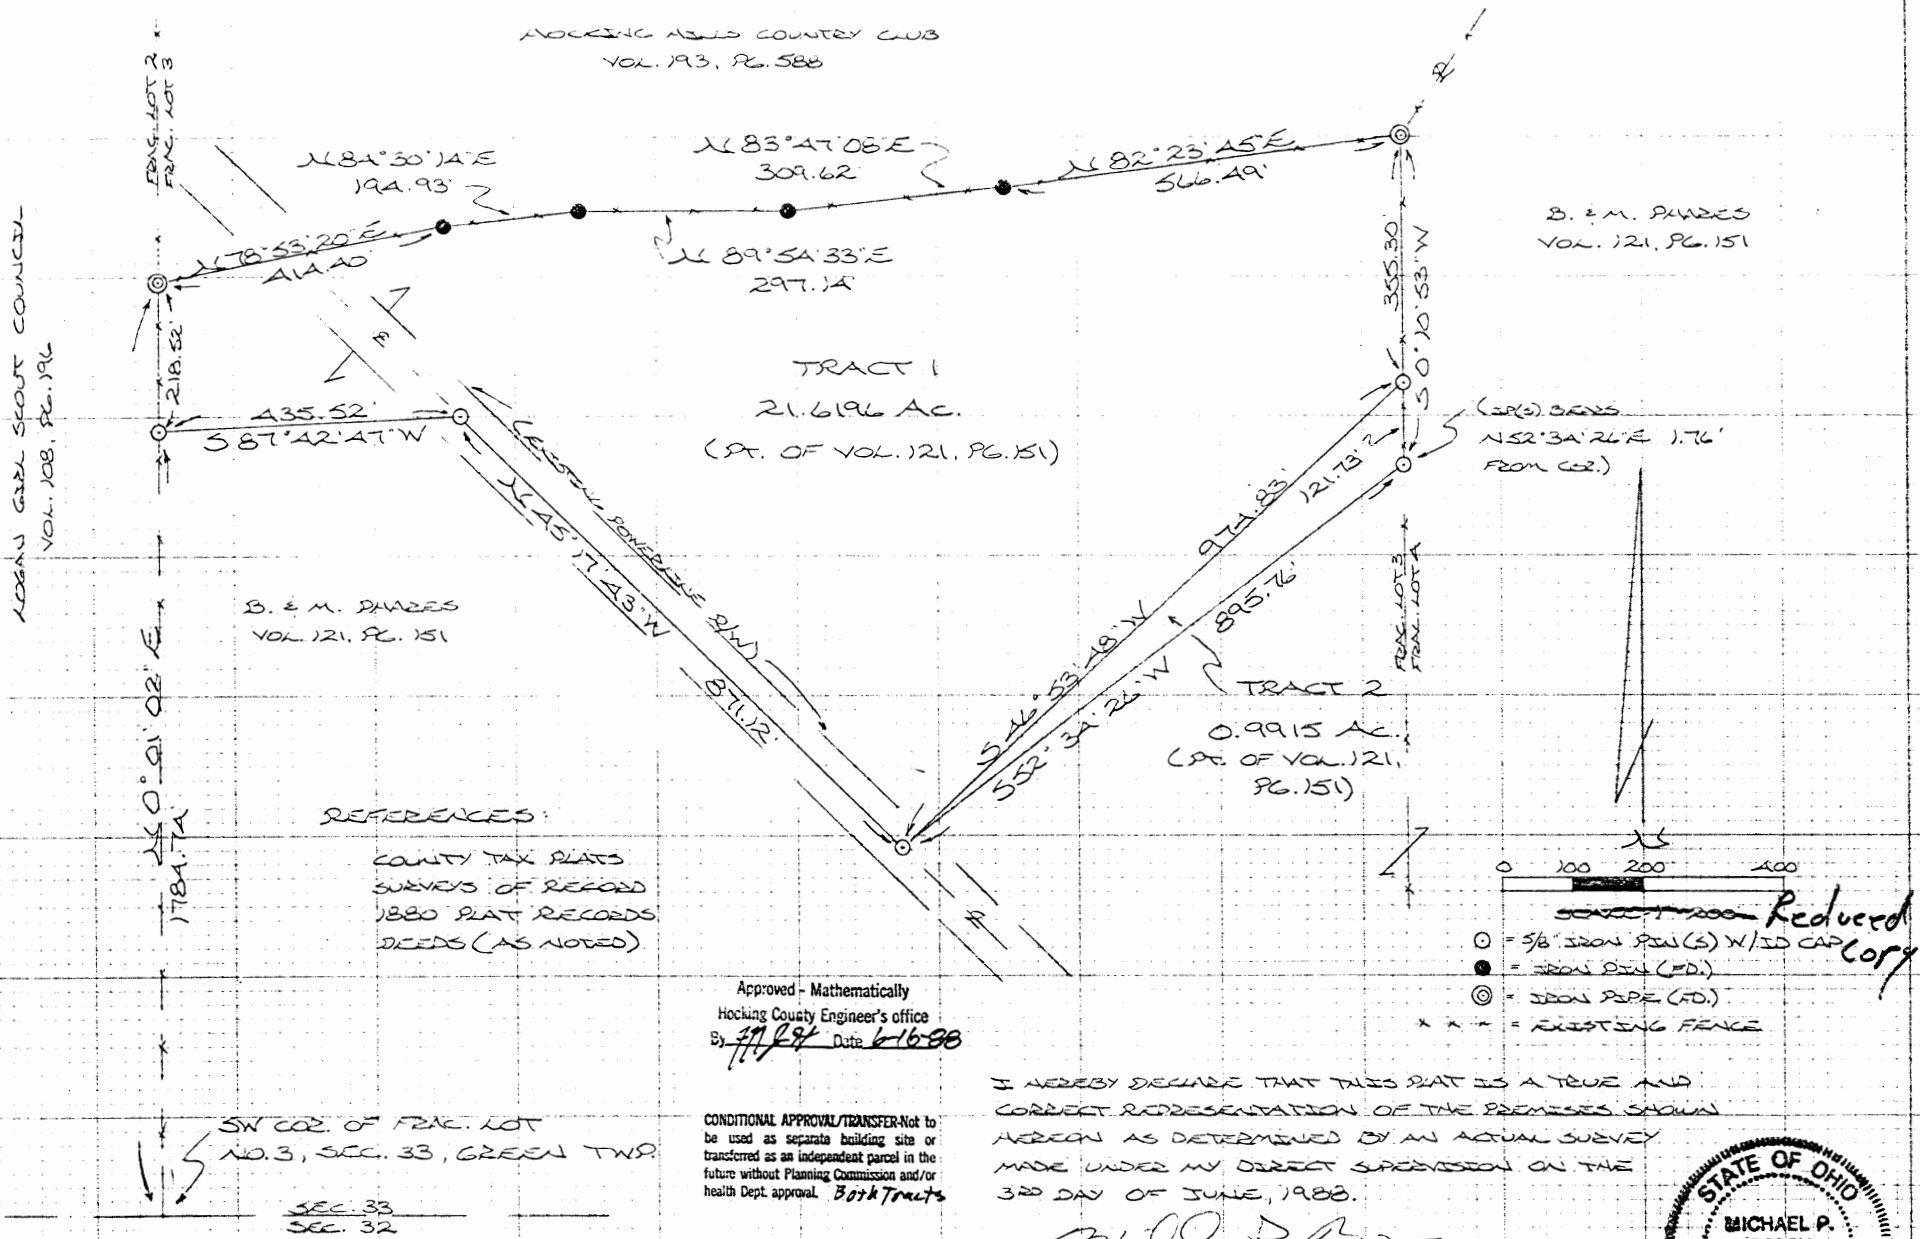 HOCKING HILLS COUNTRY CLUB
VOL. 193, PG. 588
FRAC. LOT 2
FRAC. LOT 3
N 84°30'14"E
194.93'
N 83°47'08"E
309.62'
N 82°23'45"E
566.49'
N 78°53'20"E
414.40'
N 89°54'33"E
297.14'
B. & M. PHARES
VOL. 121, PG. 151
LOGAN GIRL SCOUT COUNCIL
VOL. 108, PG. 196
218.52'
355.30'
S 0°10'53"W
435.52'
S 87°42'47"W
TRACT 1
21.6196 AC.
(PT. OF VOL. 121, PG. 151)
(IP(S) BEARS
N 52°34'26"E 1.76'
FROM COR.)
121.73'
(EXISTING POWERLINE R/W)
N 45°17'43"W
871.12'
974.83'
S 46°53'48"W
895.76'
S 52°34'26"W
FRAC. LOT 3
FRAC. LOT 4
B. & M. PHARES
VOL. 121, PG. 151
TRACT 2
0.9915 AC.
(PT. OF VOL. 121,
PG. 151)
N 0°01'02"E
1784.74'
REFERENCES:
COUNTY TAX PLATS
SURVEYS OF RECORD
1880 PLAT RECORDS
DEEDS (AS NOTED)
N
0 100 200 400
SCALE 1"=200'
Reduced
Copy
= 5/8" IRON PIN (S) W/ ID CAP
= IRON PIN (FD.)
= IRON PIPE (FD.)
x x x = EXISTING FENCE
Approved - Mathematically
Hocking County Engineer's office
By Date 6-16-88
CONDITIONAL APPROVAL/TRANSFER-Not to
be used as separate building site or
transferred as an independent parcel in the
future without Planning Commission and/or
health Dept. approval. Both Tracts
I HEREBY DECLARE THAT THIS PLAT IS A TRUE AND
CORRECT REPRESENTATION OF THE PREMISES SHOWN
HEREON AS DETERMINED BY AN ACTUAL SURVEY
MADE UNDER MY DIRECT SUPERVISION ON THE
3RD DAY OF JUNE, 1988.
SW COR. OF FRAC. LOT
NO. 3, SEC. 33, GREEN TWP.
SEC. 33
SEC. 32
STATE OF OHIO
MICHAEL P.